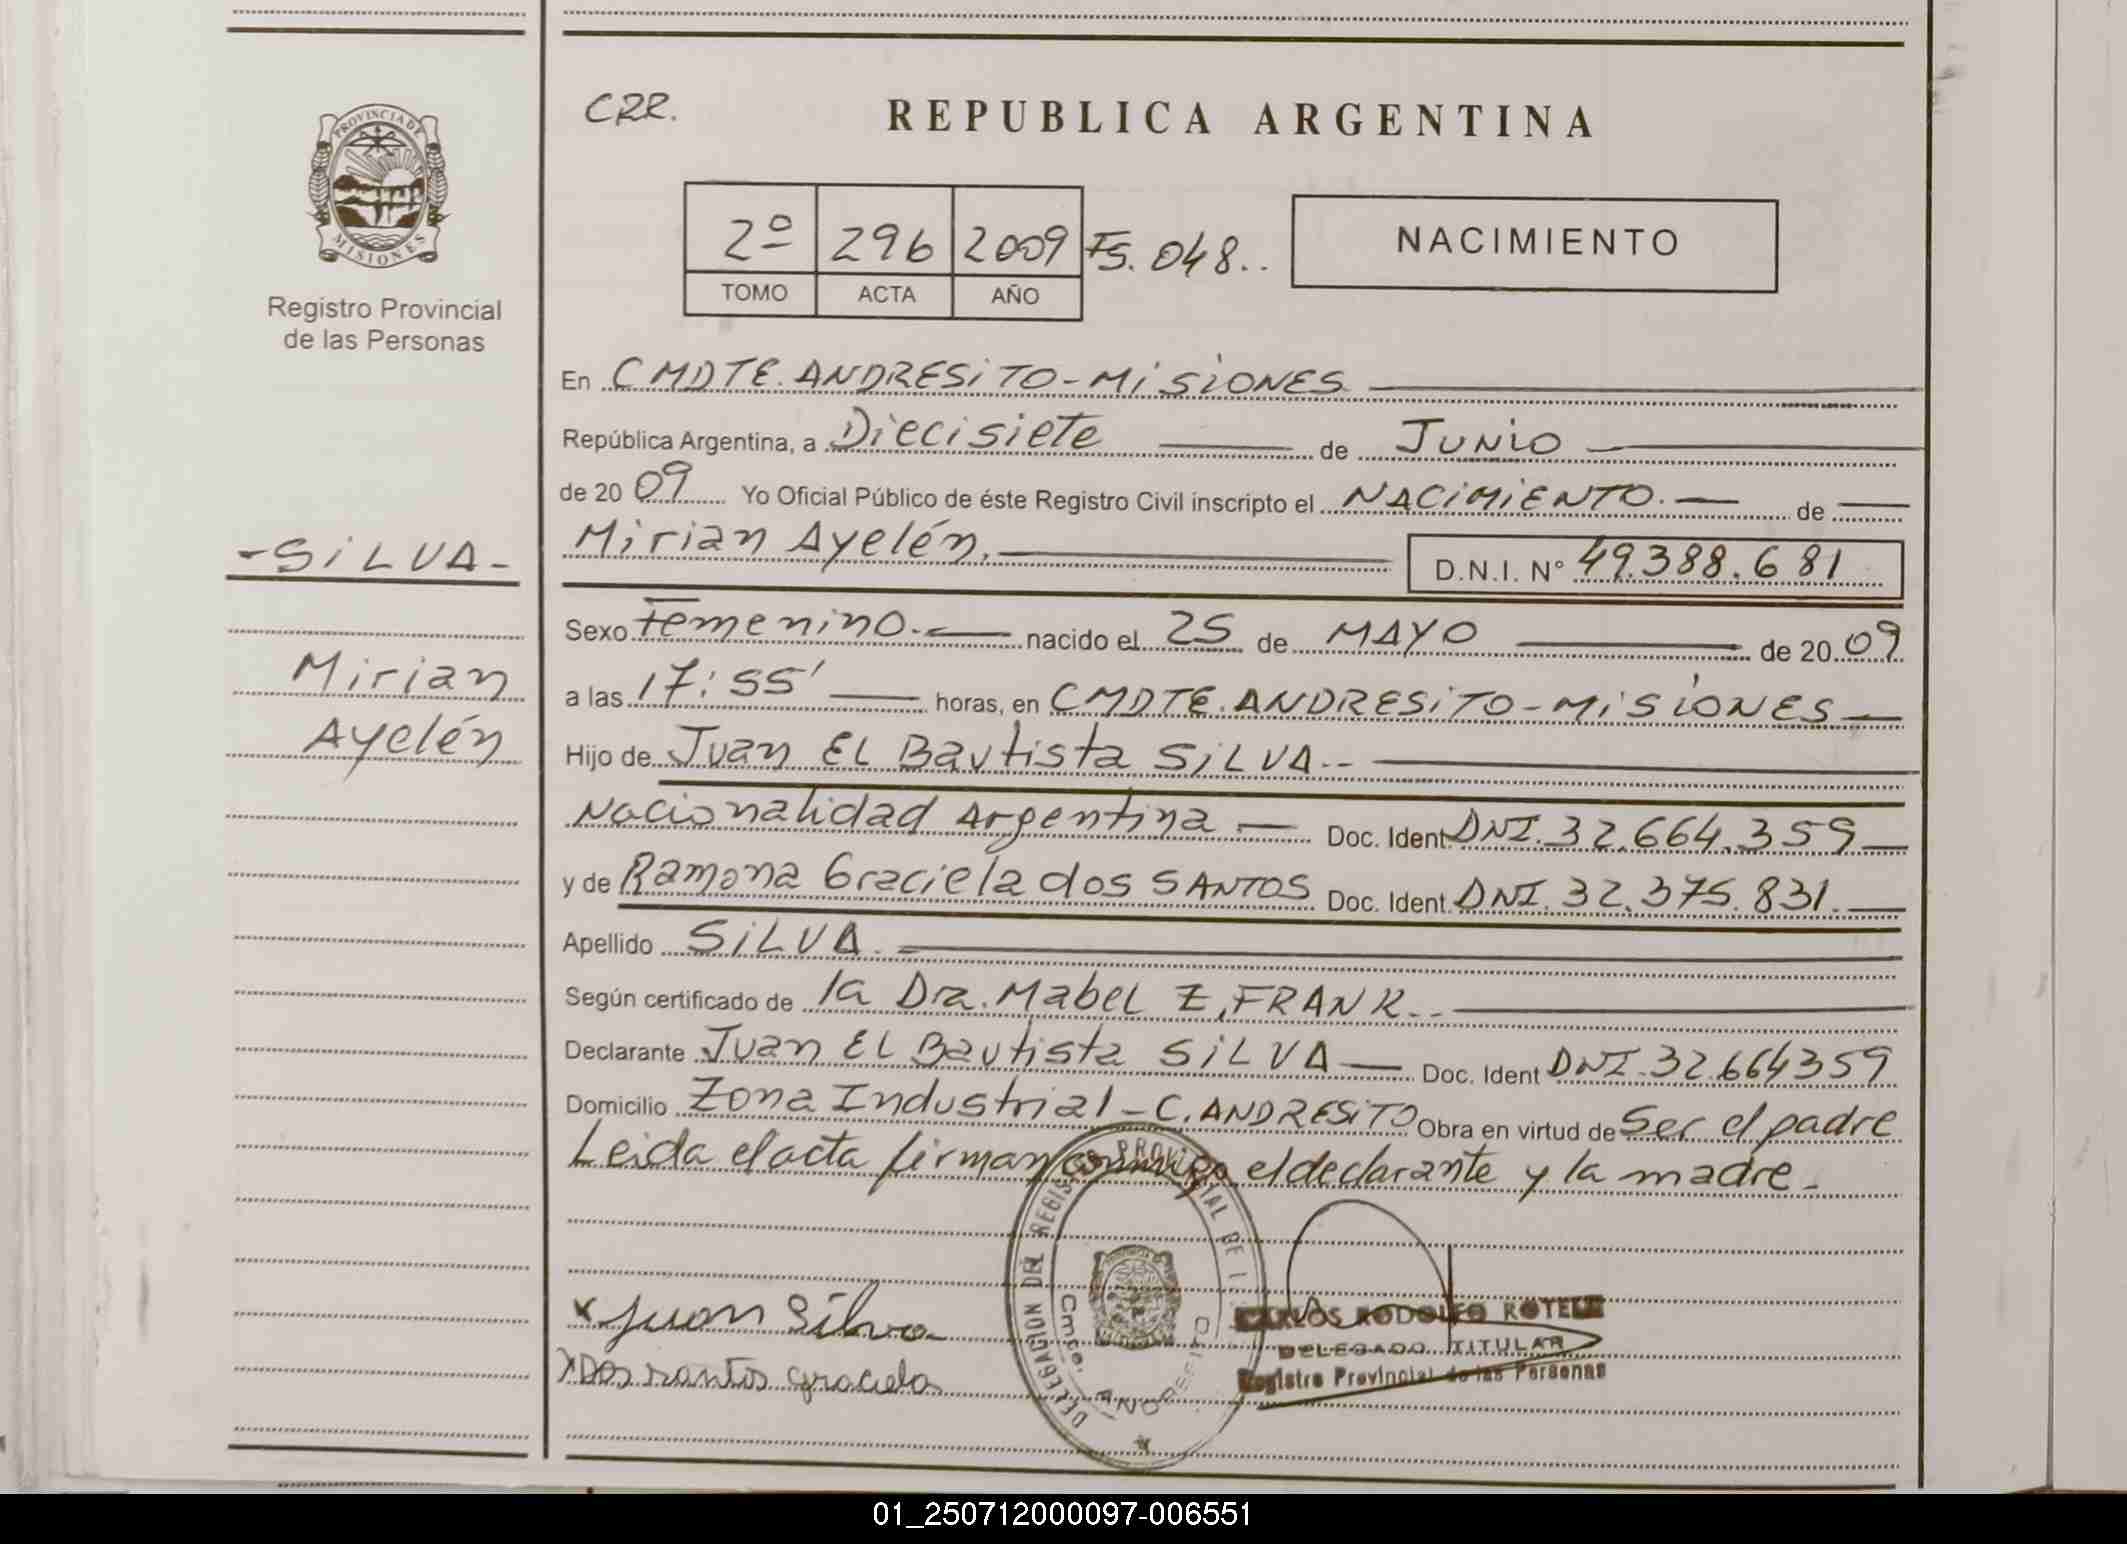 CRR.
REPUBLICA ARGENTINA
PROVINCIA DE
MISIONES
Registro Provincial
de las Personas
2º 296 2009 FS. 048..
TOMO ACTA AÑO
NACIMIENTO
En CMDTE. ANDRESITO - MISIONES
República Argentina, a Diecisiete de JUNIO
de 20 09 Yo Oficial Público de éste Registro Civil inscripto el NACIMIENTO. de
Mirian Ayelén. D.N.I. Nº 49.388.681
- SILVA -
Mirian
Ayelén
Sexo Femenino. nacido el 25 de MAYO de 20 09
a las 17:55' horas, en CMDTE. ANDRESITO - MISIONES
Hijo de Juan EL Bautista SILVA..
Nacionalidad Argentina Doc. Ident. DNI. 32.664.359
y de Ramona Graciela dos SANTOS Doc. Ident. DNI. 32.375.831.
Apellido SILVA.
Según certificado de la Dra. Mabel Z. FRANK..
Declarante Juan EL Bautista SILVA Doc. Ident DNI. 32.664359
Domicilio Zona Industrial - C. ANDRESITO Obra en virtud de Ser el padre
Leida el acta firman conmigo el declarante y la madre.
DELEGACION DEL REGISTRO PROVINCIAL DE
Cmte. ANDRESITO
x Juan Silva
x Dos santos graciela
CARLOS RODOLFO ROTELA
DELEGADO TITULAR
Registro Provincial de las Personas
01_250712000097-006551